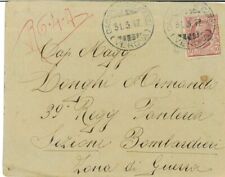 31.3.17
Cap. Magg.
Donghi Armando
39º Regg. Fanteria
Sezione Bombardieri
Zona di Guerra